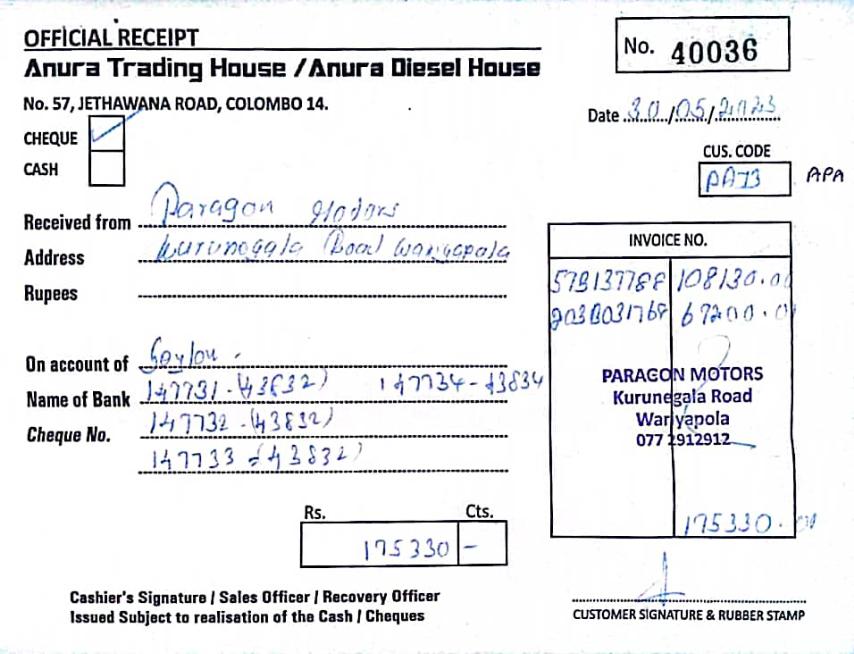 OFFICIAL RECEIPT
No. 40036
Anura Trading House / Anura Diesel House
No. 57, JETHAWANA ROAD, COLOMBO 14.
Date 30/05/2023
CHEQUE
CUS. CODE
CASH
PA73 APA
Received from Paragon Motors
INVOICE NO.
Address Kurunegala Road Wariyapola
57B137788 108130.00
Rupees
203B031768 67200.00
On account of Seylon.
PARAGON MOTORS
Name of Bank 147731-(43832) 147734-43834
Kurunegala Road
Wariyapola
Cheque No. 147732-(43832)
077 2912912
147733-(43832)
Rs. Cts.
175330.00
175330 -
Cashier's Signature / Sales Officer / Recovery Officer
Issued Subject to realisation of the Cash / Cheques
CUSTOMER SIGNATURE & RUBBER STAMP